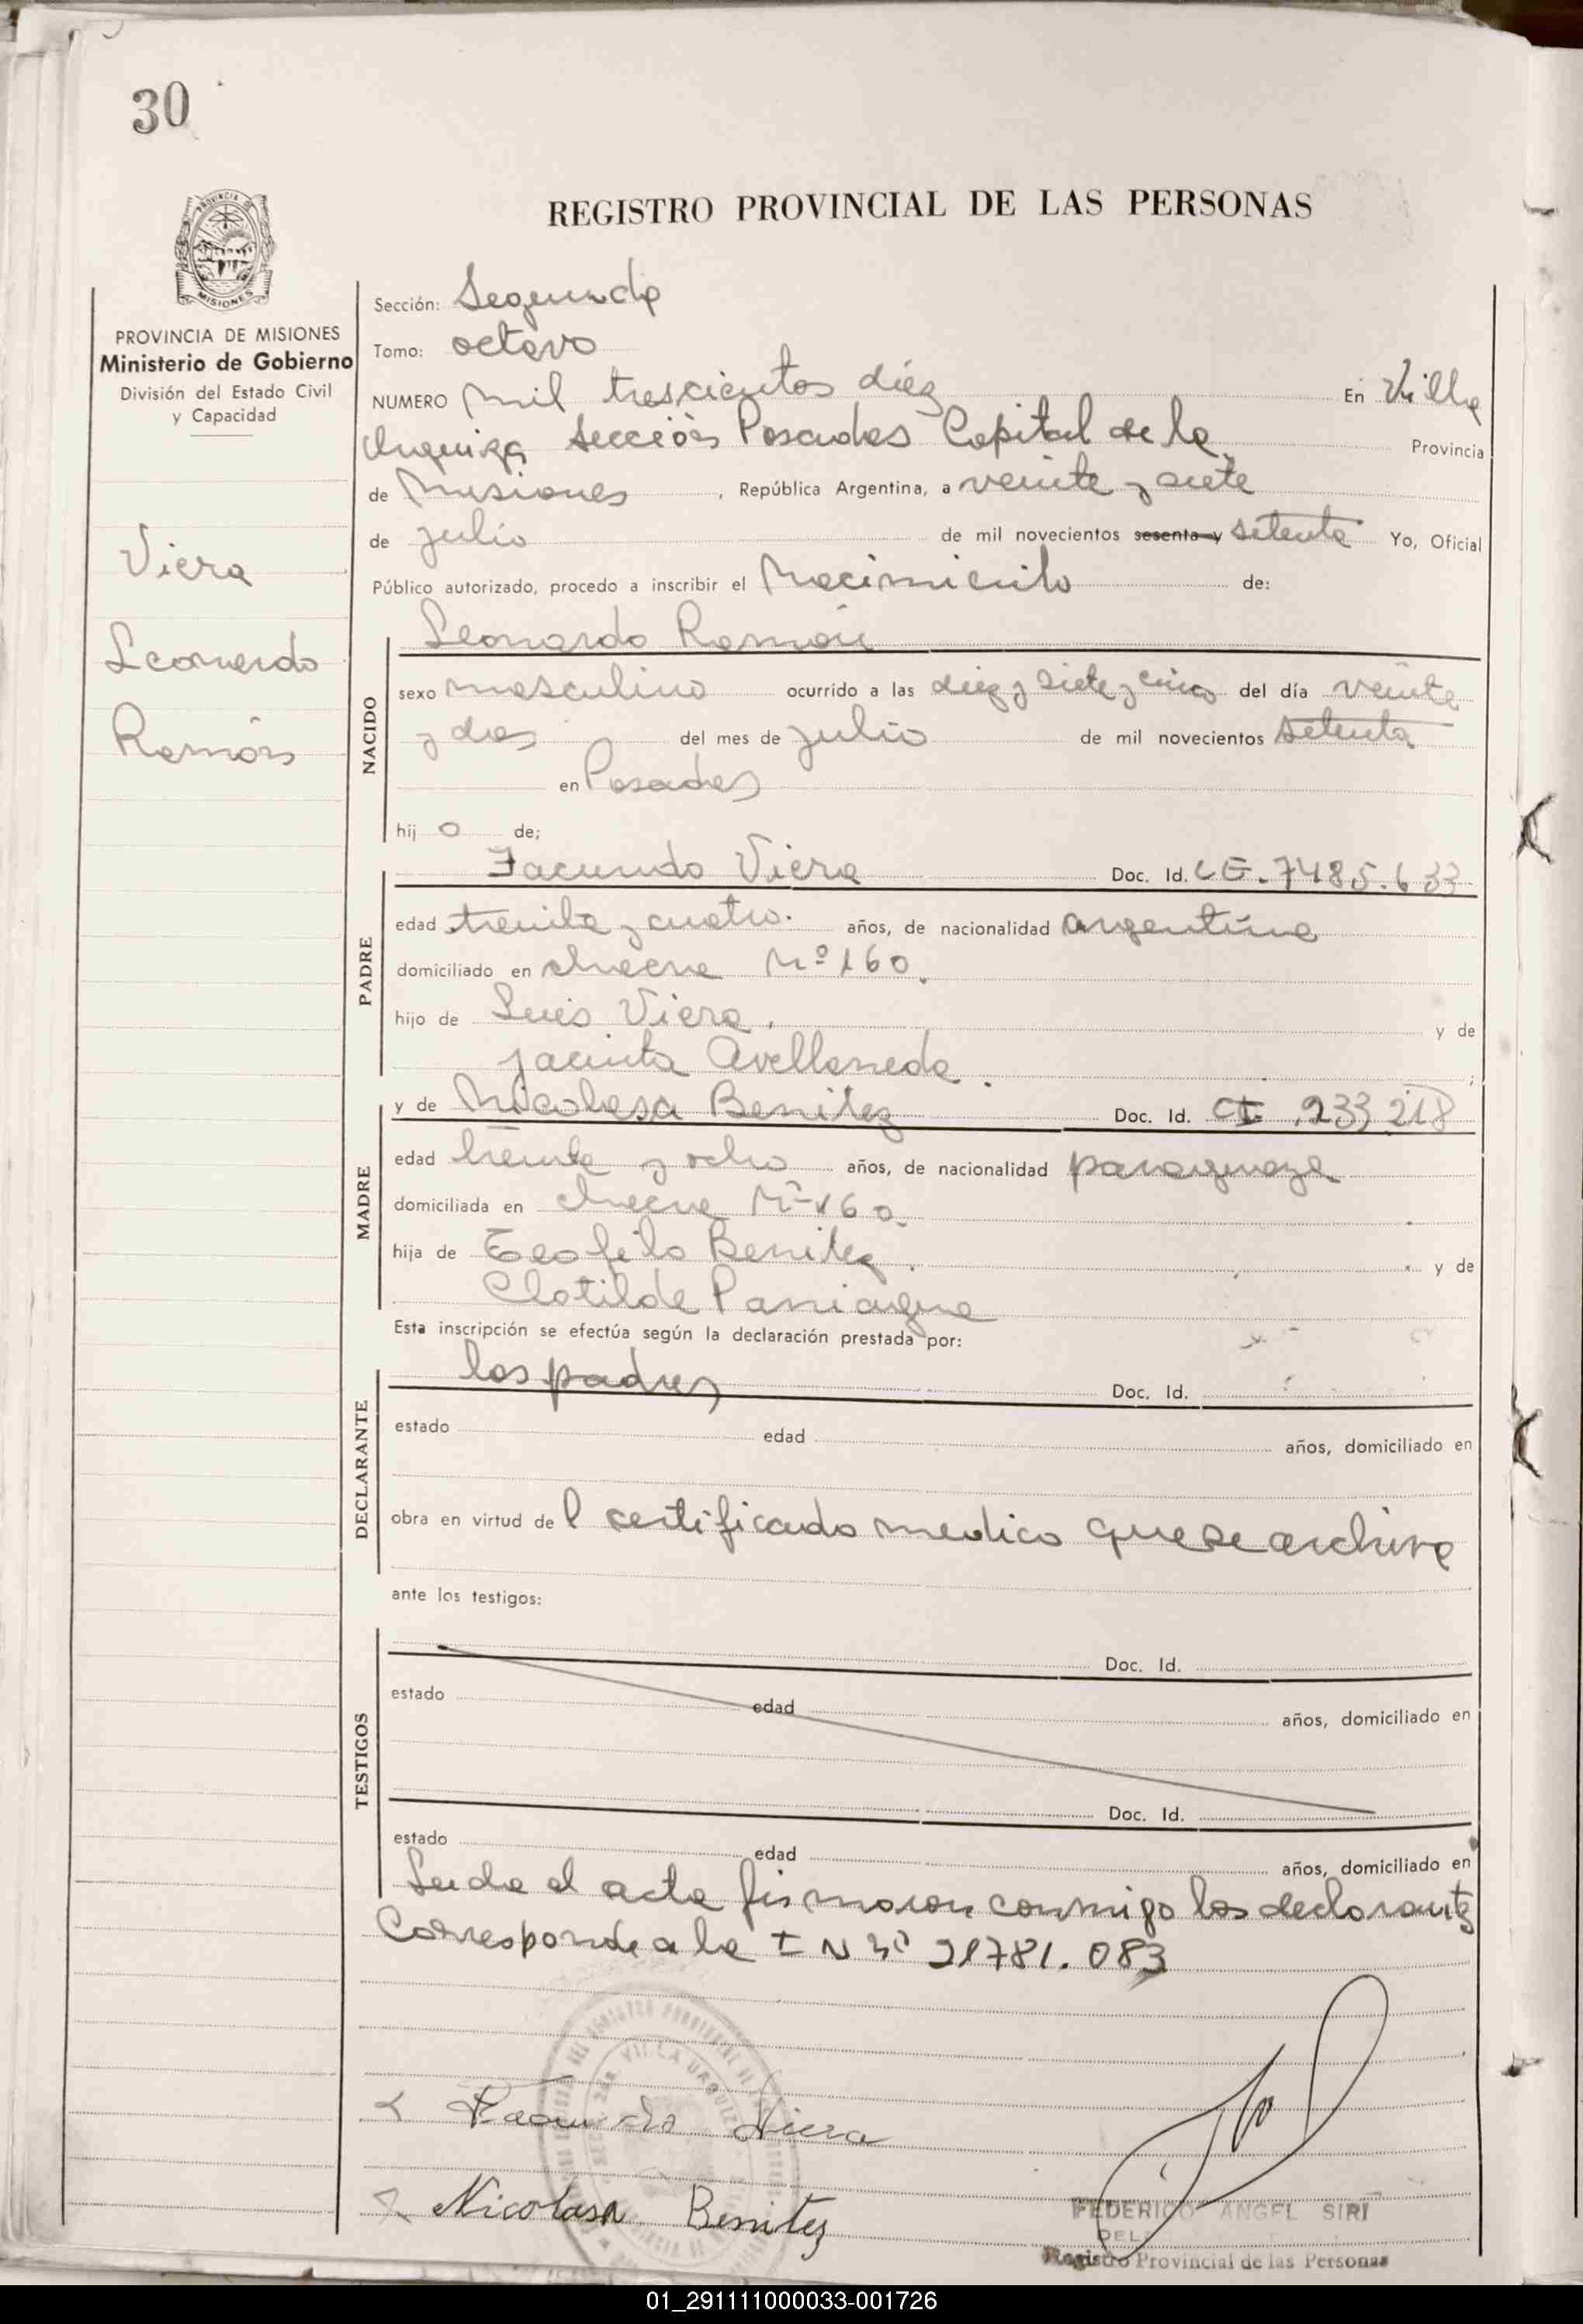 30
REGISTRO PROVINCIAL DE LAS PERSONAS
PROVINCIA DE MISIONES
Ministerio de Gobierno
División del Estado Civil
y Capacidad
Viera
Leonardo
Ramón
Sección: Segunda
Tomo: octavo
NUMERO Mil trescientos diéz En Villa
Urquiza Sección Posadas Capital de la Provincia
de Misiones, República Argentina, a veinte y siete
de julio de mil novecientos sesenta y setenta Yo, Oficial
Público autorizado, procedo a inscribir el Nacimiento de:
NACIDO
Leonardo Ramón
sexo masculino ocurrido a las diez y siete y cinco del día veinte
y dos del mes de julio de mil novecientos setenta
en Posadas
hijo de;
PADRE
Facundo Viera Doc. Id. LE. 7485.633
edad treinta y cuatro. años, de nacionalidad argentina
domiciliado en Nº 160.
hijo de Luis Viera, y de
Jacinta Avellaneda.;
MADRE
y de Nicolasa Benitez Doc. Id. CI 233 218
edad treinta y ocho años, de nacionalidad paraguaya
domiciliada en Nº 160.
hija de Teofilo Benitez. y de
Clotilde Paniagua
Esta inscripción se efectúa según la declaración prestada por:
DECLARANTE
los padres Doc. Id.
estado edad años, domiciliado en
obra en virtud del certificado medico que se archiva
ante los testigos:
TESTIGOS
Doc. Id.
estado edad años, domiciliado en
Doc. Id.
estado edad años, domiciliado en
Leida el acta firmaron conmigo los declarantes
Corresponde a la I N Nº 21781.083
Facundo Viera
Nicolasa Benitez
FEDERICO ANGEL SIRI
DEL
Registro Provincial de las Personas
01_291111000033-001726